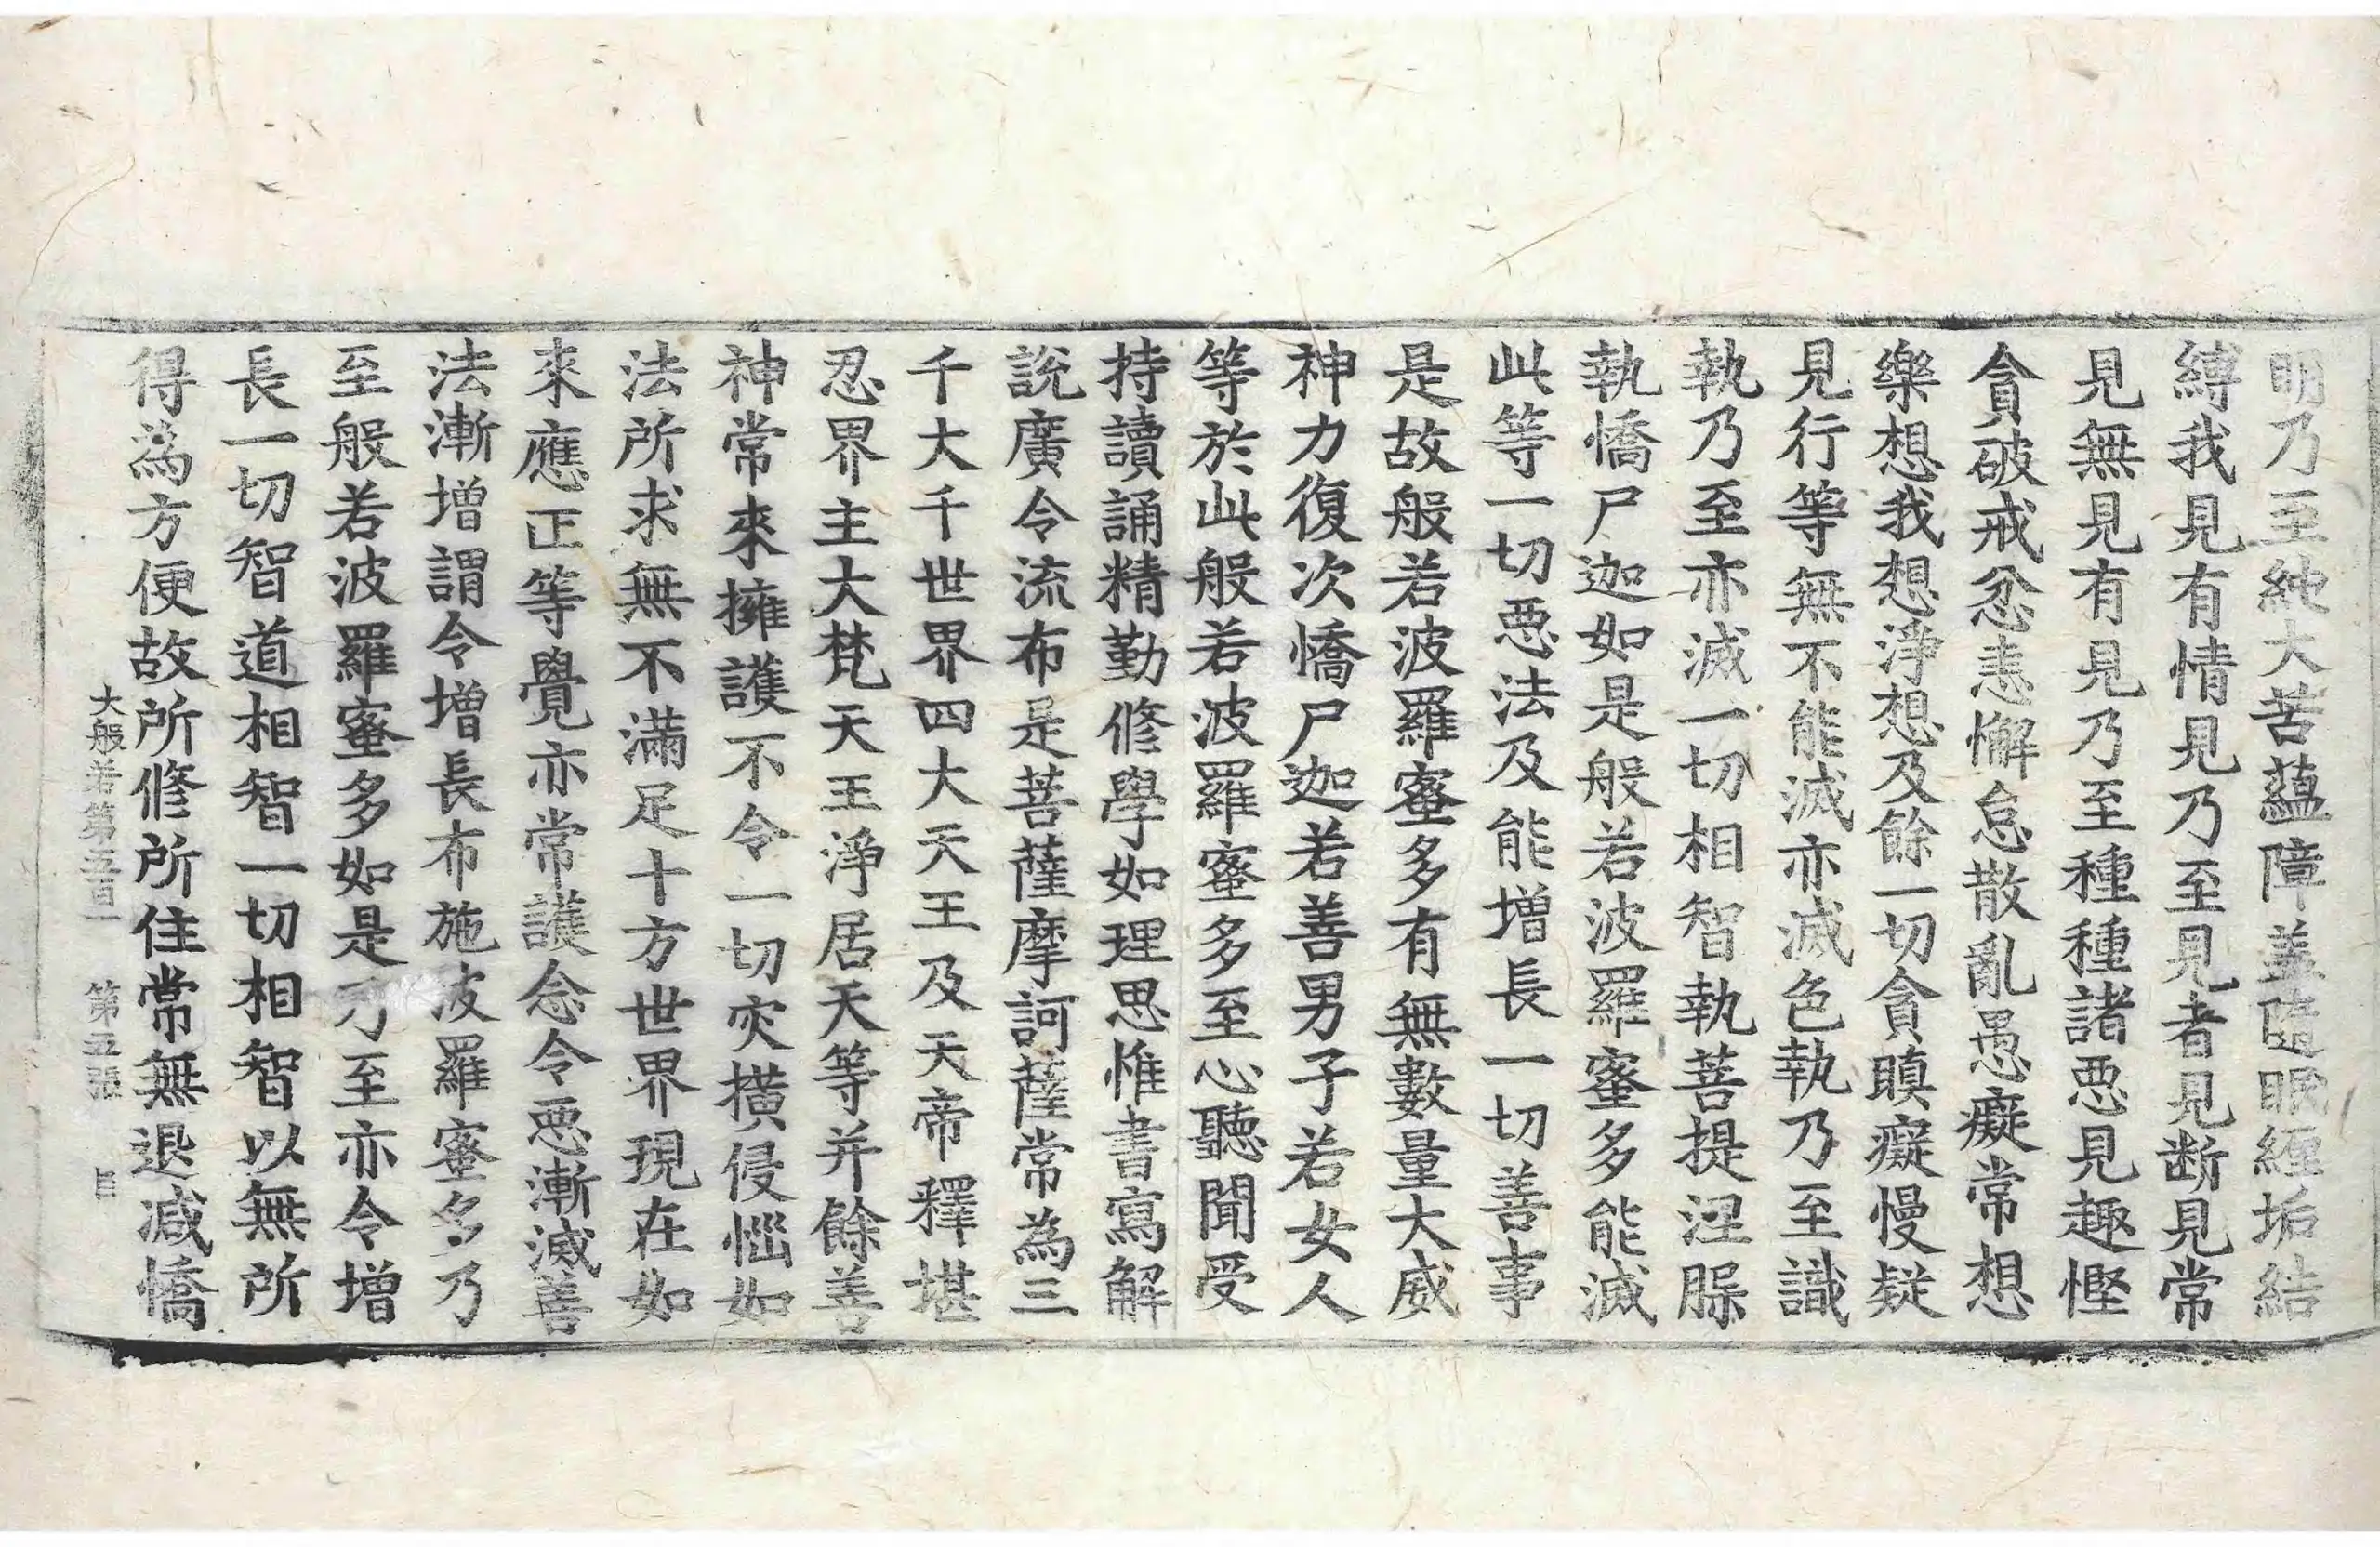 明乃至純大苦蘊障蓋隨眠纏垢結
縛我見有情見乃至見者見断見常
見無見有見乃至種種諸惡見趣慳
貪破戒忿恚懈怠散亂愚癡常想
樂想我想淨想及餘一切貪瞋癡慢疑
見行等無不能滅亦滅色執乃至識
執乃至亦滅一切相智執菩提涅槃
執憍尸迦如是般若波羅蜜多能滅
此等一切惡法及能增長一切善事
是故般若波羅蜜多有無數量大威
神力復次憍尸迦若善男子若女人
等於此般若波羅蜜多至心聽聞受
持讀誦精勤修學如理思惟書寫解
說廣令流布是菩薩摩訶薩常為三
千大千世界四大天王及天帝釋堪
忍界主大梵天王淨居天等并餘善
神常來擁護不令一切灾撗侵惱如
法所求無不滿足十方世界現在如
來應正等覺亦常護念令惡漸滅善
法漸增謂令增長布施波羅蜜多乃
至般若波羅蜜多如是乃至亦令增
長一切智道相智一切相智以無所
得為方便故所修所住常無退減憍
大般若第五百一 第五張 旨